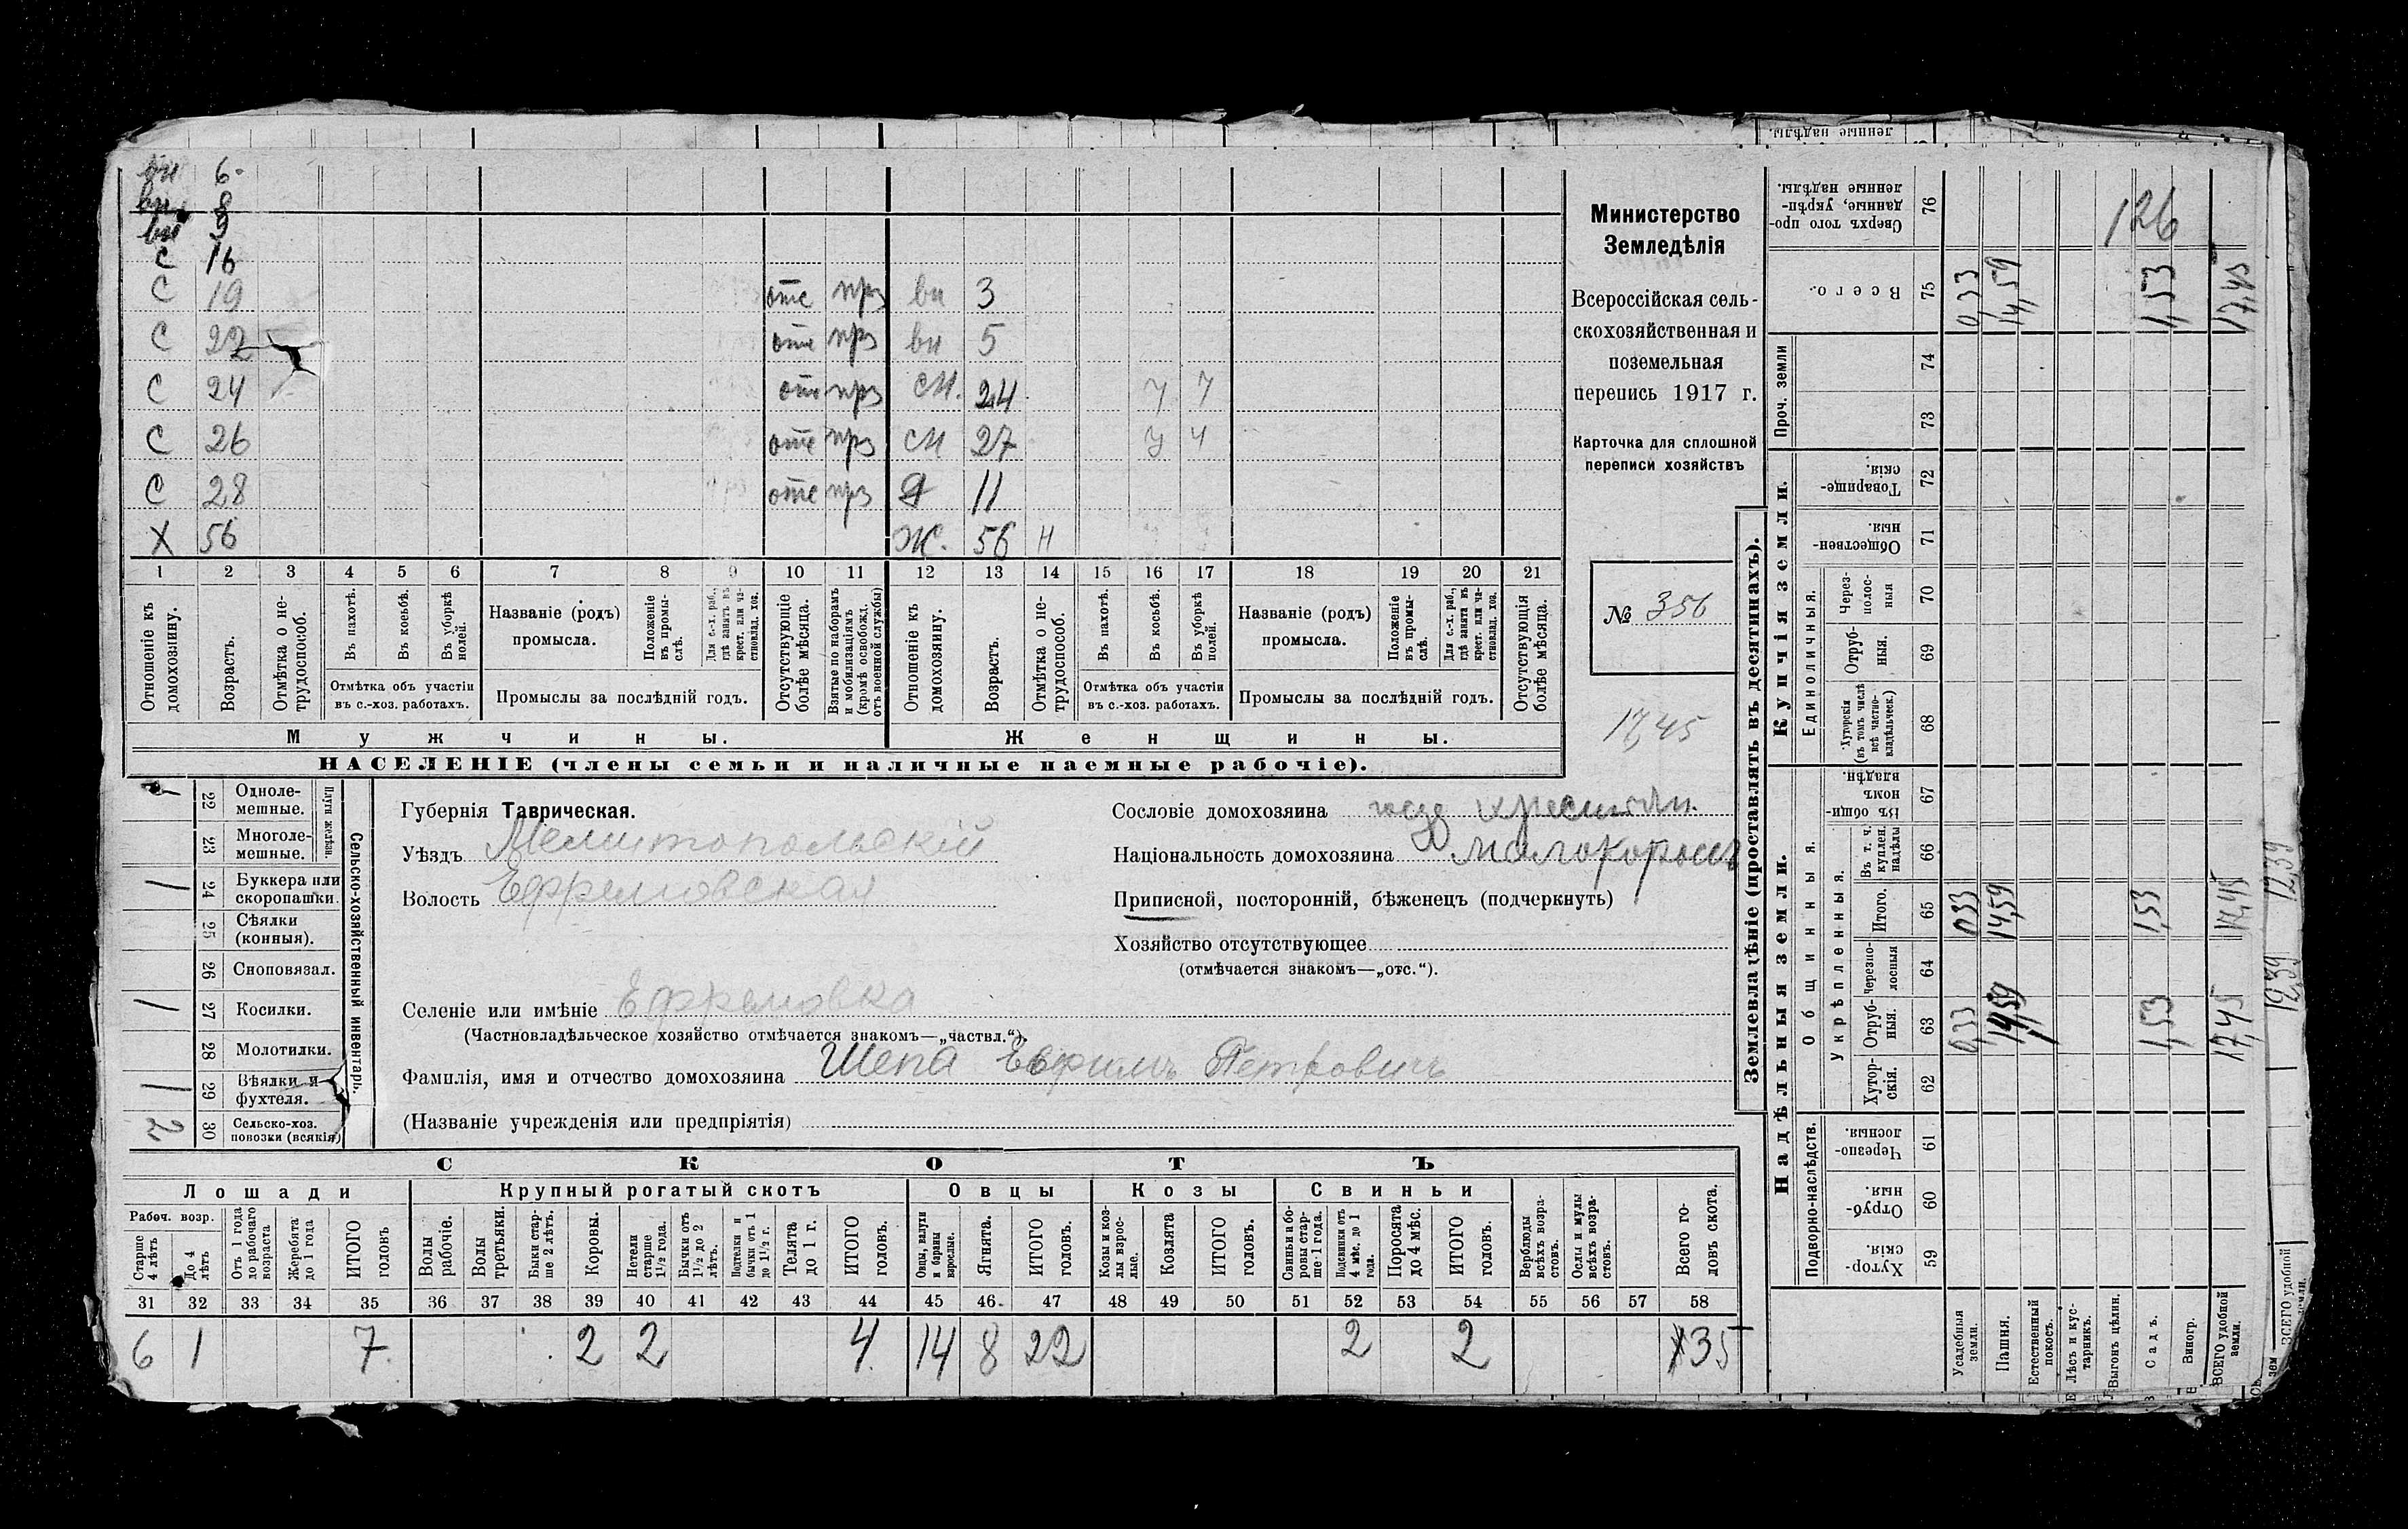 вн 6
вн 8
вн 9
С 16
С 19 отс прз вн 3
С 22 отс прз вн 5
С 24 отс прз сн. 24 у у
С 26 отс прз сн 27 у у
С 28 отс прз Д 11
Х 56 Ж. 56 н
1 2 3 4 5 6 7 8 9 10 11 12 13 14 15 16 17 18 19 20 21
Отношеніе къ домохозяину.
Возрастъ.
Отмѣтка о нетрудоспособ.
Въ пахотѣ.
Въ косьбѣ.
Въ уборкѣ полей.
Отмѣтка объ участіи
въ с.-хоз. работахъ.
Названіе (родъ)
промысла.
Положеніе въ промыслѣ.
Для с.-х. раб., гдѣ занятъ въ крест. или частновлад. хоз.
Промыслы за послѣдній годъ.
Отсутствующіе болѣе мѣсяца.
Взятые по наборамъ и мобилизаціямъ (кромѣ освобожд. отъ военной службы)
Отношеніе къ домохозяину.
Возрастъ.
Отмѣтка о нетрудоспособ.
Въ пахотѣ.
Въ косьбѣ.
Въ уборкѣ полей.
Отмѣтка объ участіи
въ с.-хоз. работахъ.
Названіе (родъ)
промысла.
Положеніе въ промыслѣ.
Для с.-х. раб., гдѣ занята въ крест. или частновлад. хоз.
Промыслы за послѣдній годъ.
Отсутствующія болѣе мѣсяца.
Мужчины. Женщины.
НАСЕЛЕНІЕ (члены семьи и наличные наемные рабочіе).
Министерство
Земледѣлія
Всероссійская сель-
скохозяйственная и
поземельная
перепись 1917 г.
Карточка для сплошной
переписи хозяйствъ
№ 356
17,45
Сельско-хозяйственный инвентарь.
Плуги желѣзн.
22 Однолемешные.
23 Многолемешные.
1 24 Буккера или скоропашки.
25 Сѣялки (конныя).
26 Сноповязал.
1 27 Косилки.
28 Молотилки.
1 29 Вѣялки и фухтеля.
2 30 Сельско-хоз. повозки (всякія)
Губернія Таврическая.
Уѣздъ Мелитопольскій
Волость Ефремовская
Селеніе или имѣніе Ефремовка
(Частновладѣльческое хозяйство отмѣчается знакомъ—„частвл.“).
Фамилія, имя и отчество домохозяина Шепа Ефримъ Петровичъ
(Названіе учрежденія или предпріятія)
Сословіе домохозяина
Національность домохозяина малороссъ
Приписной, посторонній, бѣженецъ (подчеркнуть)
Хозяйство отсутствующее
(отмѣчается знакомъ—„отс.“).
СКОТЪ
Лошади Крупный рогатый скотъ Овцы Козы Свиньи
Рабоч. возр.
Старше 4 лѣтъ
До 4 лѣтъ
Отъ 1 года до рабочаго возраста
Жеребята до 1 года
ИТОГО головъ
Волы рабочіе.
Волы третьяки.
Быки старше 2 лѣтъ.
Коровы.
Нетели старше 1½ года.
Бычки отъ 1½ до 2 лѣтъ.
Подтелки и бычки отъ 1 до 1½ г.
Телята до 1 г.
ИТОГО головъ.
Овцы, валухи и бараны взрослые.
Ягнята.
ИТОГО головъ.
Козы и козлы взрослые.
Козлята
ИТОГО головъ.
Свиньи и боровы старше 1 года.
Подсвинки отъ 4 мѣс. до 1 года.
Поросята до 4 мѣс.
ИТОГО головъ.
Верблюды всѣхъ возрастовъ.
Ослы и мулы всѣхъ возрастовъ.
Всего головъ скота.
31 32 33 34 35 36 37 38 39 40 41 42 43 44 45 46 47 48 49 50 51 52 53 54 55 56 57 58
6 1 7 2 2 4 14 8 22 2 2 35
Землевладѣніе (проставлять въ десятинахъ).
Надѣльныя земли. Купчія земли. Проч. земли
Подворно-наслѣдств. Общинныя. Укрѣпленныя. Единоличныя.
59 Хуторскія.
60 Отрубныя.
61 Черезполосныя.
62 Хуторскія.
63 Отрубныя.
64 Черезполосныя
65 Итого.
66 Въ т. ч. куплен. надѣлы
67 Въ общинномъ владѣн.
68 Хуторскія (въ томъ числѣ всѣ частновладѣльческ.)
69 Отрубныя.
70 Черезполосныя
71 Общественныя.
72 Товарищескія.
73
74
75 Всего.
76 Сверхъ того проданные, укрѣпленные надѣлы.
Усадебныя земли. 0,33 0,33 0,33
Пашня. 14,59 14,59 14,59
Естественный покосъ.
Лѣсъ и кустарникъ.
Выгонъ цѣлин.
Садъ. 1,53 1,53 1,53
Виногр.
ВСЕГО удобной земли. 17,45 17,45 17,45
126
12,39 12,39
ВСЕГО удобной
ленные надѣлы.